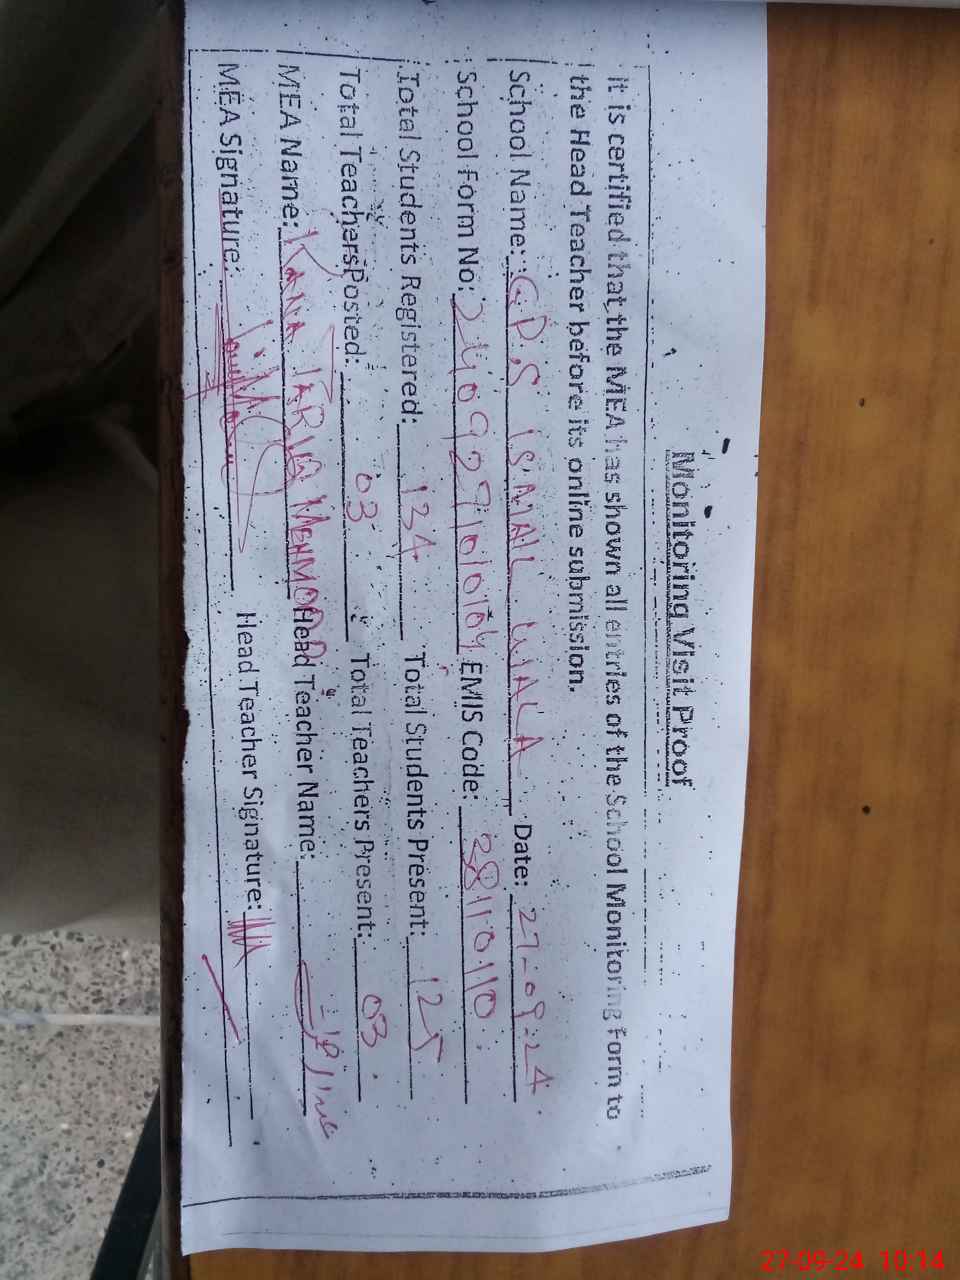 Monitoring Visit Proof
It is certified that the MEA has shown all entries of the School Monitoring Form to
the Head Teacher before its online submission.
School Name: GPS ISMAIL WALA Date: 27-09-24
School Form No: EMIS Code: 38110110
Total Students Registered: 134 Total Students Present: 125
Total Teachers Posted: 03 Total Teachers Present: 03
MEA Name: RANA TARIQ MEHMOOD Head Teacher Name:
MEA Signature: Head Teacher Signature:
27-09-24 10:14